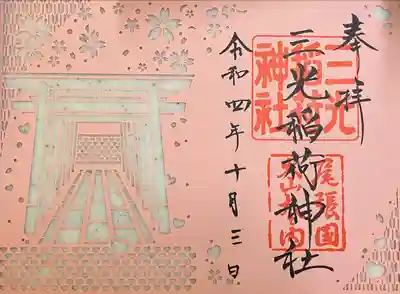 奉拝
三光稲荷神社
三光稲荷神社
尾張国
犬山寺内
令和四年十月三日